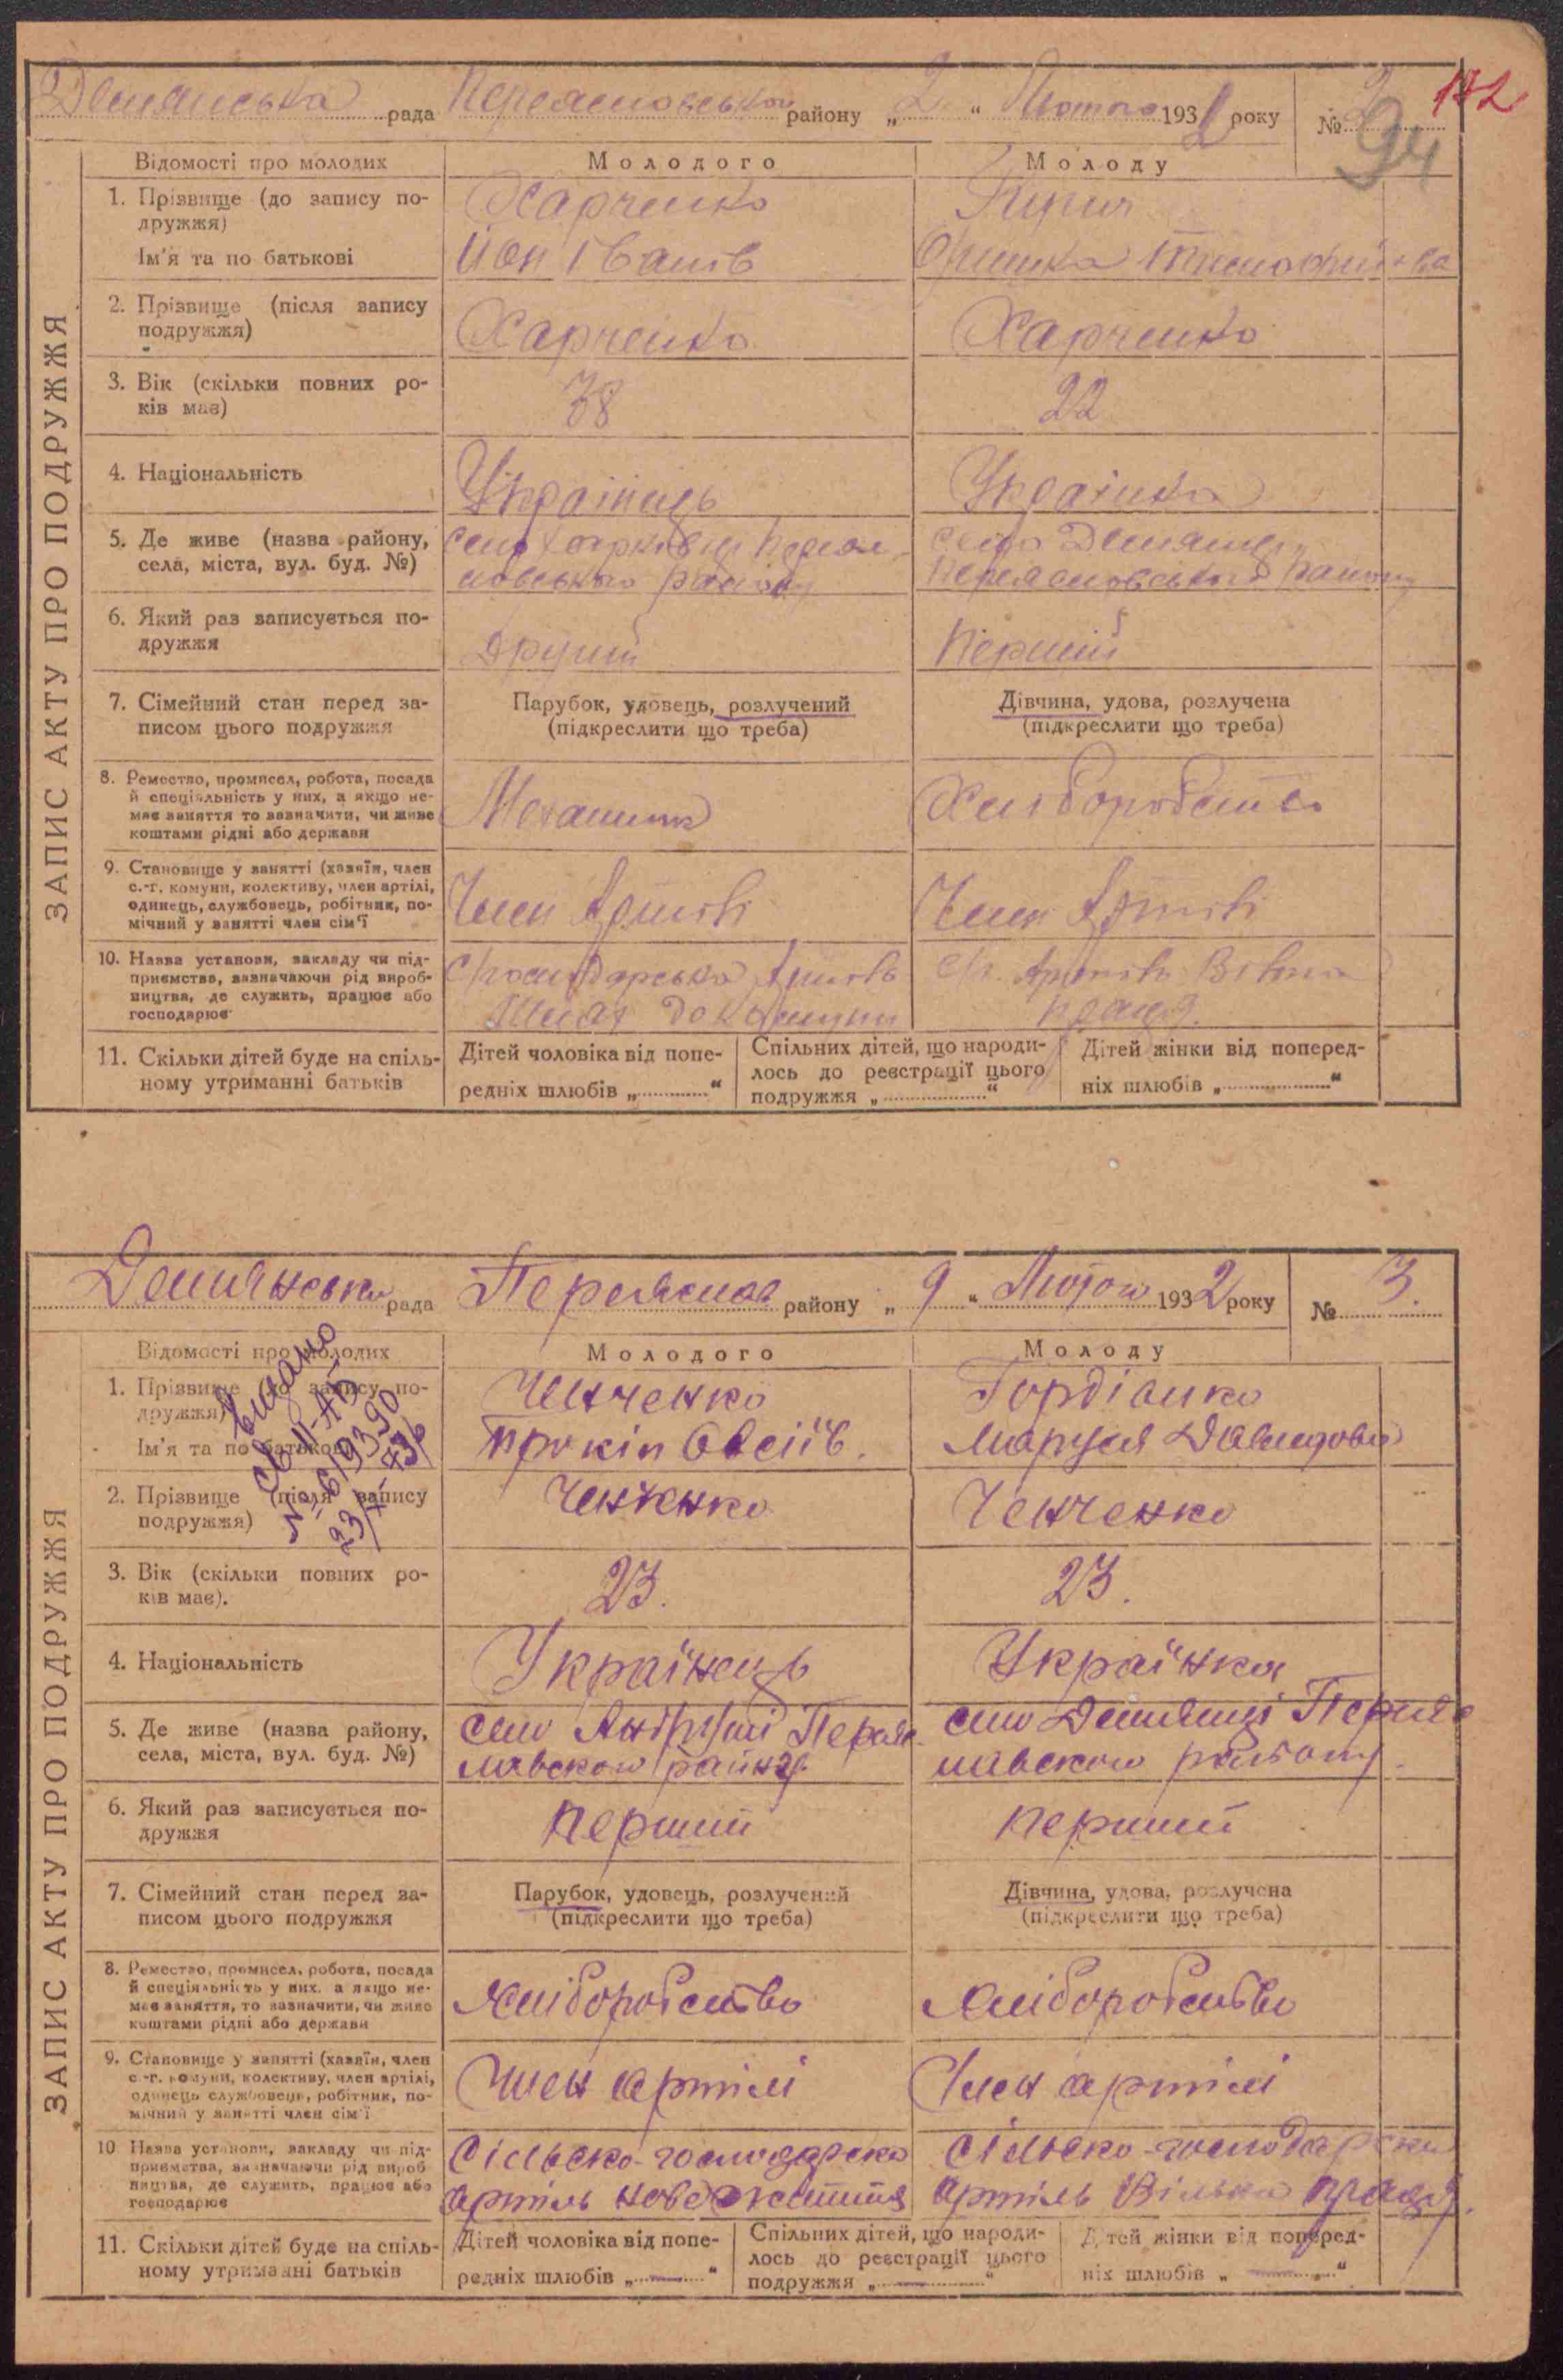 Демянська рада Переясловського району „ 2 “ Лютого 1932 року № 2
172
94
ЗАПИС АКТУ ПРО ПОДРУЖЖЯ
Відомості про молодих Молодого Молоду
1. Прізвище (до запису по-
дружжя) Харченко
Ім'я та по батькові Йон Іванів Оришка
2. Прізвище (після запису
подружжя) Харченко Харченко
3. Вік (скільки повних ро-
ків має) 38 22
4. Національність Українець Українка
5. Де живе (назва району,
села, міста, вул. буд. №) село Харківці Переясловського району село Демянці Переясловського району
6. Який раз записується по-
дружжя Другий Перший
7. Сімейний стан перед за-
писом цього подружжя
Парубок, удовець, розлучений
(підкреслити що треба)
Дівчина, удова, розлучена
(підкреслити що треба)
8. Ремество, промисел, робота, посада
й спеціяльність у них, а якщо не-
має заняття то зазначити, чи живе
коштами рідні або держави
Механик Хліборобство
9. Становище у занятті (хазяїн, член
с.-г. комуни, колективу, член артілі,
одинець, службовець, робітник, по-
мічний у занятті член сім'ї
Член Артілі Член Артілі
10. Назва установи, закладу чи під-
приємства, зазначаючи рід вироб-
ництва, де служить, працює або
господарює
Артіль Шлях до Комуни
Артіль Вільна
праця.
11. Скільки дітей буде на спіль-
ному утриманні батьків
Дітей чоловіка від попе-
редніх шлюбів „ “
Спільних дітей, що народи-
лось до реєстрації цього
подружжя „ “
Дітей жінки від поперед-
ніх шлюбів „ “
Демянська рада Переяслав району „ 9 “ Лютого 1932 року № 3.
ЗАПИС АКТУ ПРО ПОДРУЖЖЯ
Відомості про молодих Молодого Молоду
Видано
№ 619390
1. Прізвище (до запису по-
дружжя) Ченченко Гордіенко
Ім'я та по батькові Прокіп Овсіїв. Маруся Давидова
2. Прізвище (після запису
подружжя) Ченченко Ченченко
3. Вік (скільки повних ро-
ків має). 23. 23.
4. Національність Українець Українка
5. Де живе (назва району,
села, міста, вул. буд. №)
село Андруші Перея
славского району
село Демянці Перея
славского району.
6. Який раз записується по-
дружжя перший перший
7. Сімейний стан перед за-
писом цього подружжя
Парубок, удовець, розлучений
(підкреслити що треба)
Дівчина, удова, розлучена
(підкреслити що треба)
8. Ремество, промисел, робота, посада
й спеціяльність у них, а якщо не-
має заняття, то зазначити, чи живе
коштами рідні або держави
Хліборобство Хліборобство
9. Становище у занятті (хазяїн, член
с.-г. комуни, колективу, член артілі,
одинець службовець, робітник, по-
мічний у занятті член сім'ї
Член артілі Член артілі
10 Назва установи, закладу чи під-
приємства, зазначаючи рід вироб-
ництва, де служить, працює або
господарює
Сільско-господарска
артіль нове життя
Сільско-господарска
артіль Вільна праця.
11. Скільки дітей буде на спіль-
ному утриманні батьків
Дітей чоловіка від попе-
редніх шлюбів „ — “
Спільних дітей, що народи-
лось до реєстрації цього
подружжя „ — “
Дітей жінки від поперед-
ніх шлюбів „ — “